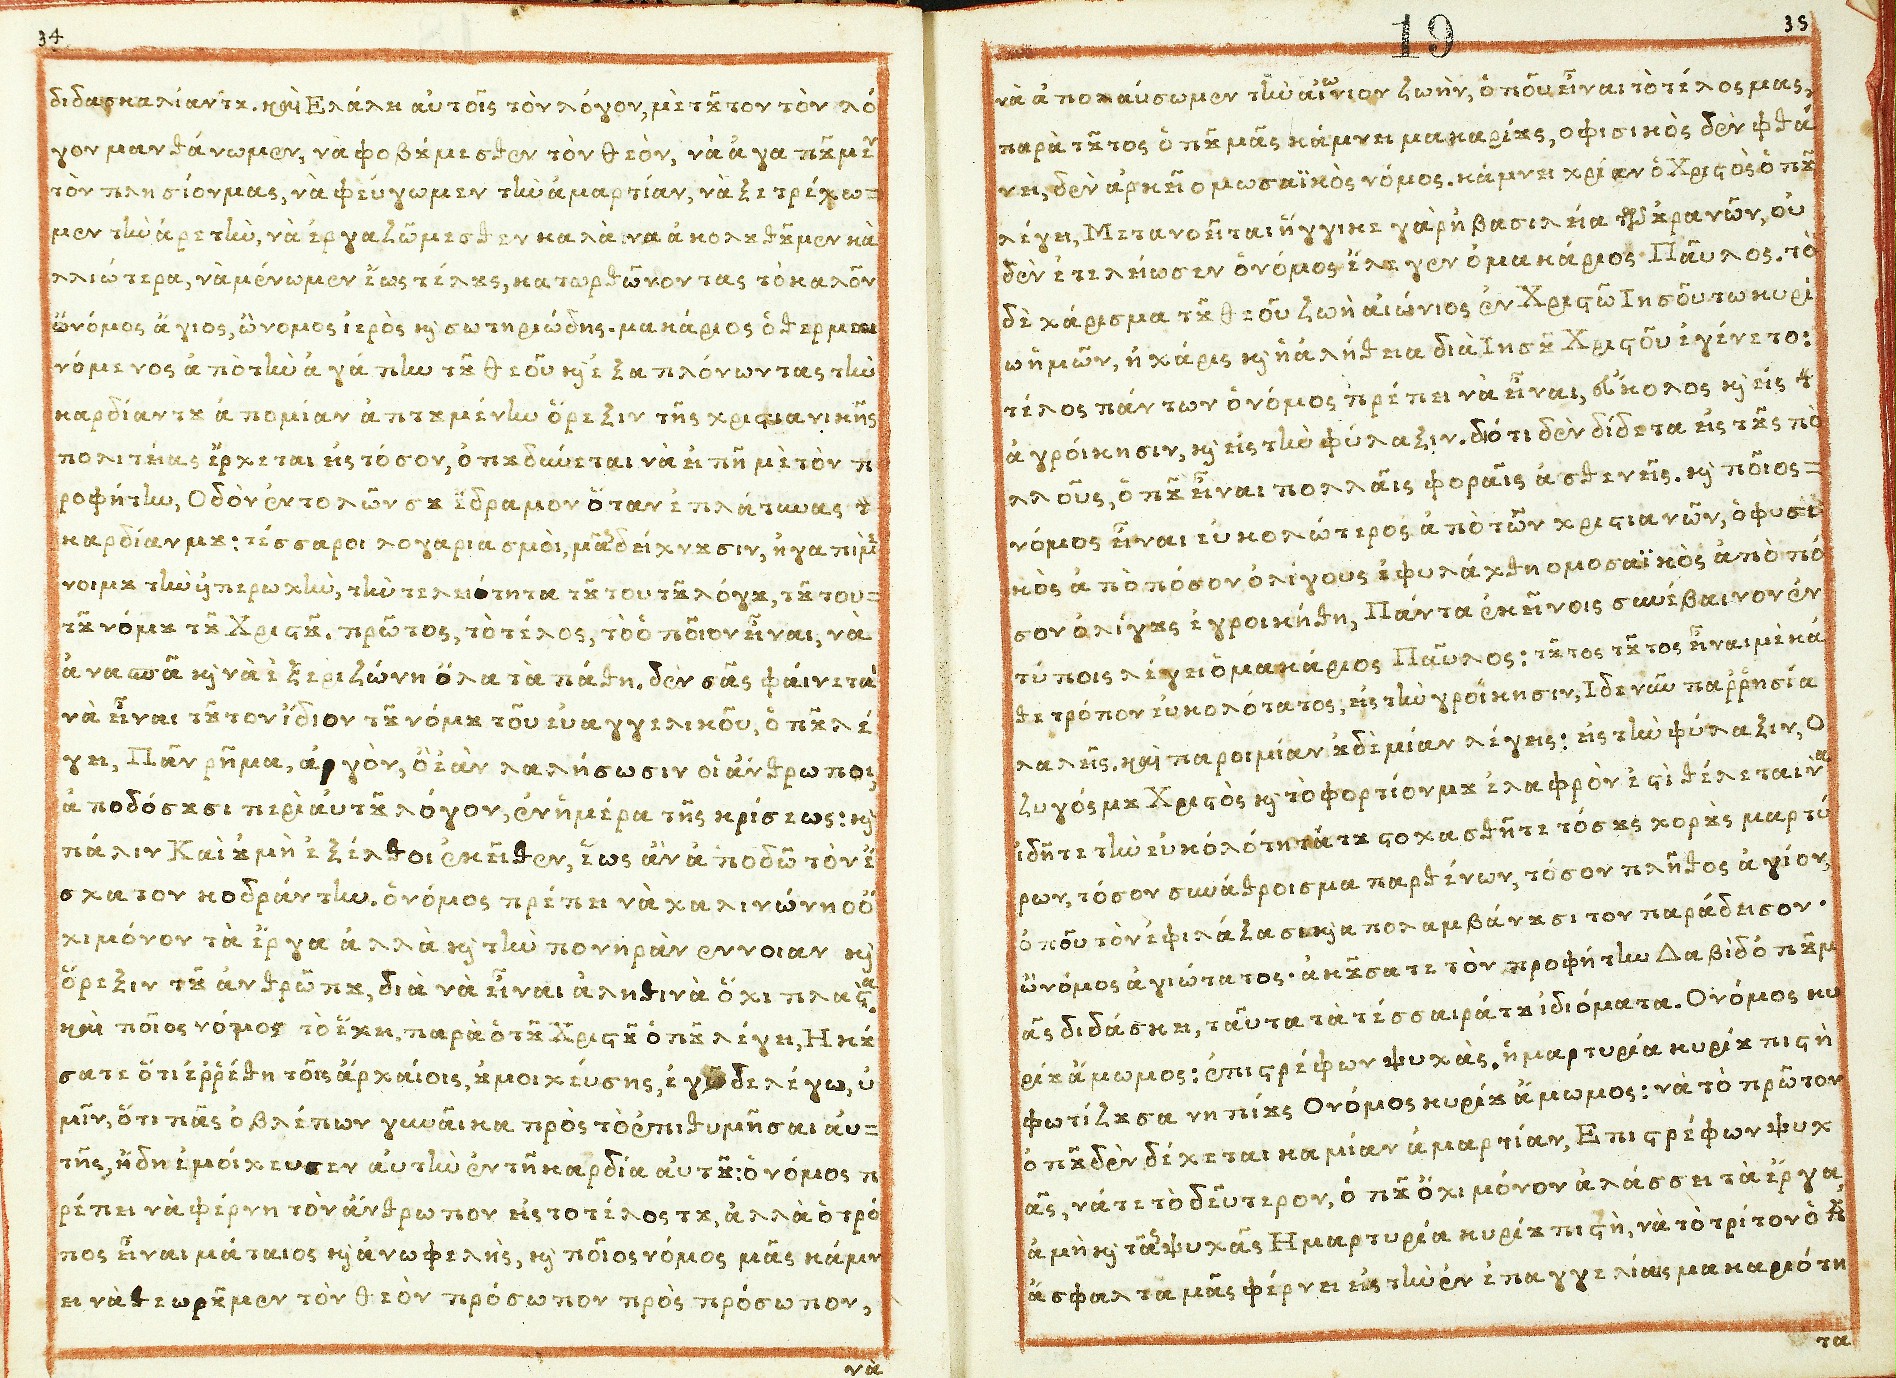 34
διδασκαλίαντȣ. καὶ Ελάλει ἀυτοῖς τὸν λόγον, μὲ τȣ͂τον τὸν λό
γον μανθάνωμεν, νὰ φοβȣ́μεσθεν τὸν θεὸν, νὰ ἀγαπȣ͂μεν
τὸν πλησίονμας, νὰ φέυγωμεν τὴν ἁμαρτίαν, νὰ ξετρέχω=
μεν τὴν ἀρετὴν, νὰ ἐργαζῶμεσθεν καλὰ να ἀκολȣθȣ͂μεν κα
λλιώτερα, νὰ μένωμεν ἕως τέλȣς, κατωρθῶνοντας τὸ καλὸν
ὢ νόμος ἅγιος, ὢ νομος ἱερὸς κ̀ σωτηριώδης. μακάριος ὁ θερμαι
νόμενος ἀπὸ τὴν ἀγάπην τȣ͂ θεοῦ κ̀ ἐξαπλόνωντας τὴν
καρδίαντȣ ἀπομίαν ἀπτȣμένην ὄρεξιν τῆς χριϛιανικῆς
πολιτείας ἔρχεται εἰς τόσον, ὁπȣ δύνεται νὰ εἰπῆ μὲ τὸν π
ροφήτην, Οδὸν ἐντολῶν σȣ ἔδραμον ὅταν ἐπλάτυνας τ̀
καρδίαν μȣ: τέσσαροι λογαριασμὸι, μᾶς δείχνȣσιν, ἠγαπιμέ
νοιμȣ τὴν ὑπερωχὴν, τὴν τελειότητα τȣ͂ τουτȣ͂ λόγȣ, τȣ͂ του=
τȣ͂ νόμȣ τȣ͂ Χριϛȣ͂. πρῶτος, τὸ τέλος, τὸ ὁποῖον εἶναι, νὰ
ἀνασπᾶ κ̀ νὰ ἐξεριζώνη ὅλα τὰ πάθη. δὲν σᾶς φάινεται
νὰ εἶναι τȣ͂τον ἴδιον τȣ͂ νόμȣ τοῦ ἐυαγγελικοῦ, ὁπȣ͂ λέ
γει, Πᾶν ρῆμα, ἀργὸν, ὃ ἐὰν λαλήσωσιν οἱ ἄνθρωποι,
ἀποδόσȣσι περὶ ἀυτȣ͂ λόγον, ἐν ἡμέρα τῆς κρίσεως: κ̀
πάλιν Καὶ ȣ μὴ ἐξέλθοι ἐκεῖθεν, ἕως ἂν ἀποδῶ τὸν ἔ
σχατον κοδράντην. ὁ νόμος πρέπει νὰ χαλινώνη οὔ
χι μόνον τὰ ἔργα ἀλλὰ κ̀ τὴν πονηρὰν εννοιαν κ̀
ὄρεξιν τȣ͂ ἀνθρῶπȣ, διὰ νὰ εἶναι ἀληθινὰ ὄχι πλαϛὰ.
καὶ ποῖος νόμος τὸ ἔχει, παρὰ ὁ τȣ͂ Χριϛȣ͂ ὁπȣ͂ λέγει, Ηκȣ́
σατε ὅτι ἐρρέθη τοῖς ἀρχαίοις, ȣ μοιχέυσης, ἐγὼ δε λέγω, ὑ
μῖν, ὅτι πᾶς ὁ βλέπων γυναῖκα πρὸς τὸ ἐπιθυμῆσαι ἀυ=
τῆς, ἤδη ἐμοίχευσεν ἀυτὴν ἐν τῆ καρδία ἀυτȣ͂: ὁ νόμος π
ρέπει νὰ φέρνη τὸν ἄνθρωπον εἰς το τέλος τȣ, ἀλλὰ ὁ τρό
πος εἶναι μάταιος κ̀ ἀνωφελὴς, κ̀ ποῖος νόμος μᾶς κάμν
ει νὰ θεωρȣ͂μεν τὸν θεὸν πρόσωπον πρὸς πρόσωπον,
νὰ
19
35
νὰ ἀπολάυσωμεν τὴν αἰώνιον ζωὴν, ὁποῦ εἶναι τὸ τέλος μας,
παρὰ τȣ͂τος ὁπȣ͂ μᾶς κάμνει μακαρίȣς, ο φισικὸς δὲν φθά
νει, δὲν ἀρκεῖ ο μωσαϊκὸς νόμος. κάμνει χρίαν ὁ Χριϛὸς ὁπȣ͂
λέγει, Μετανοεῖται ἤγγικε γὰρ ἡ βασιλεία τῶν ȣρανῶν, οὐ
δὲν ἐτελείωσεν ὁ νόμος ἔλεγεν ὁ μακάριος Παῦλος. τὸ
δὲ χάρισμα τȣ͂ θεοῦ ζωὴ αἰώνιος ἐν Χριϛῶ Ιησοῦ τω κυρί
ω ἡμῶν, ἡ χάρις κ̀ ἡ ἀλήθεια διὰ Ιησȣ͂ Χριϛοῦ ἐγένετο:
τέλος πάντων ὁ νόμος πρέπει νὰ εἶναι, εὔκολος κ̀ εἰς τ̀
ἀγρόικησιν, κ̀ εἰς τὴν φύλαξιν. διότι δὲν δίδετα εἰς τȣ̀ς πὸ
λλοῦς, ὁπȣ͂ εἶναι πολλᾶις φορᾶις ἀσθενῆς. κ̀ ποῖος=
νόμος εἶναι ἐυκολώτερος ἀπὸ τῶν χριϛιανῶν, ὁ φυσι
κὸς ἀπὸ πόσον ὀλίγους ἐφυλάχθη ο μοσαϊκὸς ἀπὸ πό
σον ὀλίγȣς ἐγροικήθη, Πάντα ἐκεῖνοις συνέβαινον ἐν
τύποις λέγει ὁ μακάριος Παῦλος: τȣ͂τος τȣ͂τος εἶναι μὲ κά
θε τρόπον ἐυκολότατος, εἰς τὴν γροίκησιν, Ιδε νῦν παρρησία
λαλεῖς. καὶ παροιμίαν ȣδὲ μίαν λέγεις: εἰς τὴν φύλαξιν, Ο
ζυγόςμȣ Χριϛὸς κ̀ τὸ φορτίονμȣ ἐλαφρὸν ἐϛὶ θέλεται να
ἰδῆτε τὴν ἐυκολότητάτȣ ϛοχασθῆτε τόσȣς χορȣ̀ς μαρτύ
ρων, τόσον συνάθροισμα παρθένων, τόσον πλῆθος ἁγίον,
ὁποῦ τὸν ἐφιλάξασι κ̀ απολαμβάνȣσι τον παράδεισον.
ὢ νόμος ἁγιώτατος. ἀκȣ́σατε τὸν προφήτην Δαβὶδ ὁπȣ͂ μ
ᾶς διδάσκει, ταῦτα τὰ τέσσαιρά τȣ ἰδιόματα. Ο νόμος κυ
ρίȣ ἄμωμος: ἐπιϛρέφων ψυχὰς. ἡ μαρτυρία κυρίȣ πιϛὴ
φωτίζȣσα νηπίȣς Ο νόμος κυρίȣ ἄμωμος: νὰ τὸ πρῶτον
ὁπȣ͂ δὲν δέχεται καμίαν ἁμαρτίαν, Επιϛρέφων ψυχ
ᾶς, νάτε τὸ δεῦτερον, ὁπȣ͂ ὄχι μόνον ἀλάσσει τὰ ἔργα
ἀμὴ κ̀ τᾶς ψυχᾶς Η μαρτυρία κυρίȣ πιϛὴ, νὰ τὸ τρίτον ὁπȣ͂
ἄσφαλτα μᾶς φέρνει εἰς τὴν ἐν ἐπαγγελίαις μακαριότη
τα